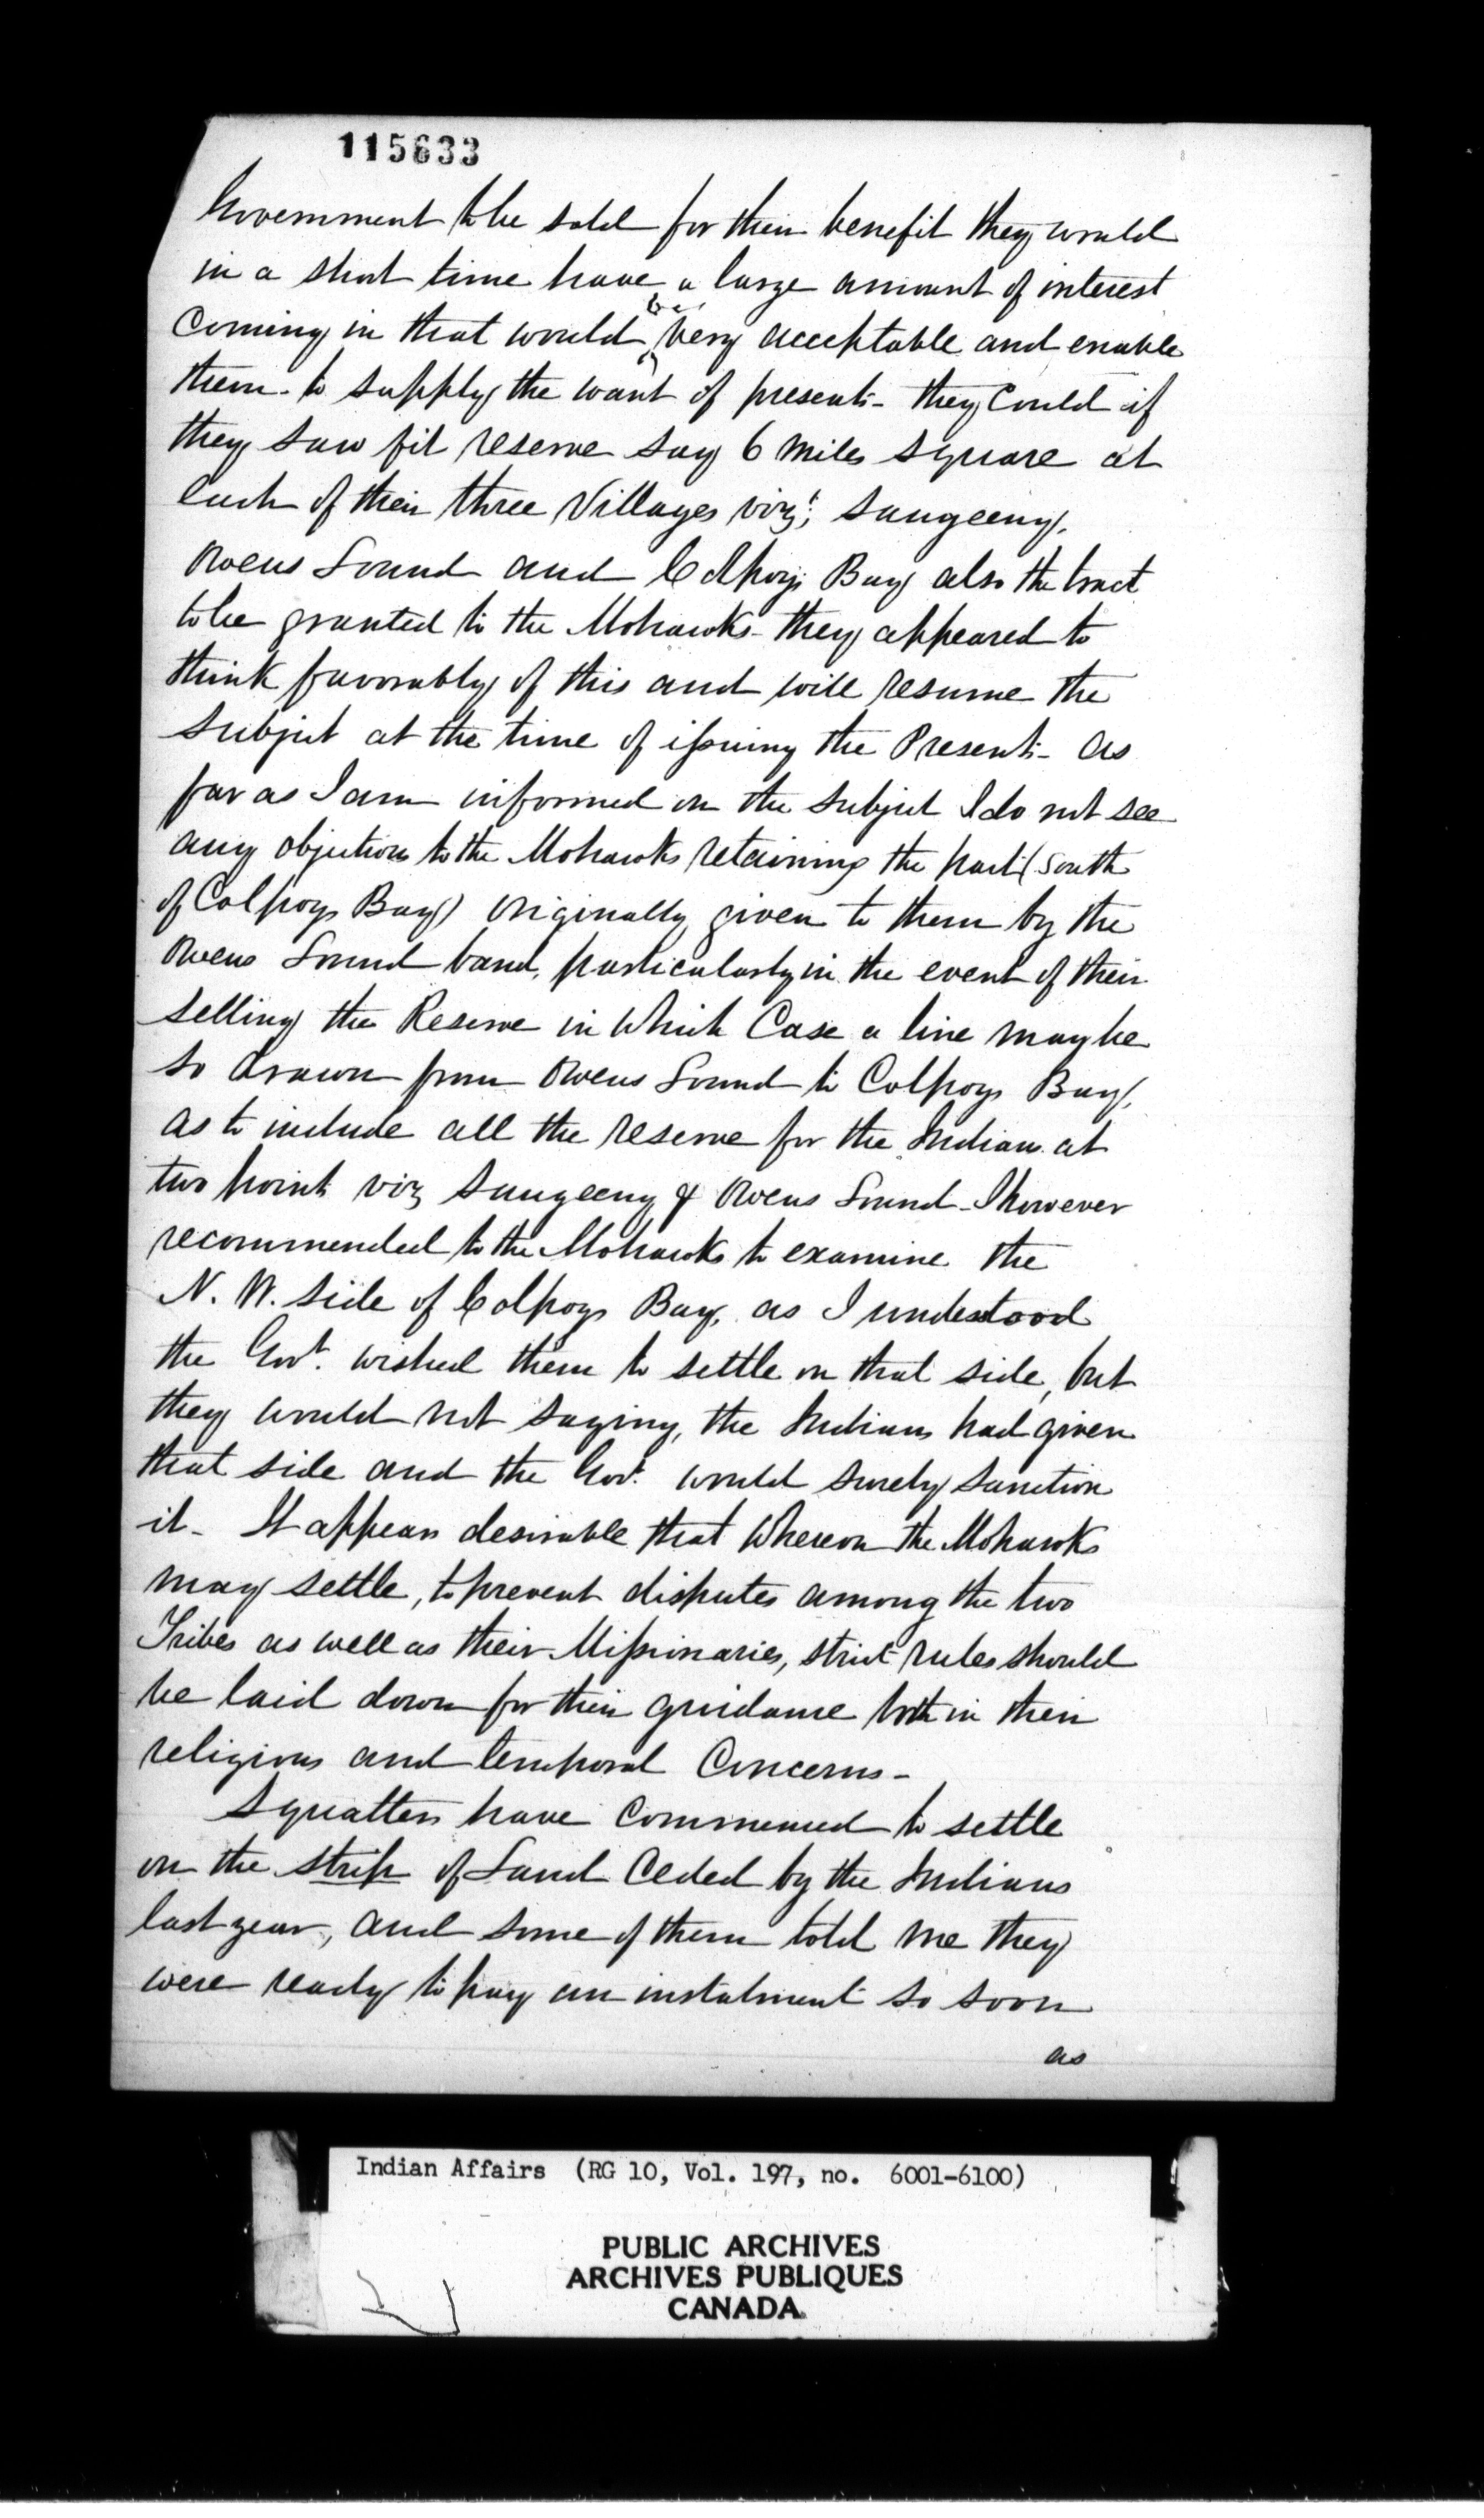 115633
Government to be sold for their benefit they would
in a short time have a large amount of interest
Coming in that would be very acceptable and enable
them to supply the want of presents - they Could if
they saw fit reserve say 6 miles square at
each of their three Villages viz; Saugeeng,
Owens Sound and Colpoys Bay also the tract
to be granted to the Mohawks - they appeared to
think favorably of this and will resume the
subject at the time of issuing the Presents - As
far as I am informed on the subject I do not see
any objections to the Mohawks retaining the part (South
of Colpoys Bay) originally given to them by the
Owens Sound band, particularly in the event of their
selling the Reserve in Which Case a line may be
so drawn from Owens Sound to Colpoys Bay,
as to include all the reserve for the Indians at
two points viz Saugeeng & Owens Sound - I however
recommended to the Mohawks to examine the
N. W. side of Colpoys Bay, as I understood
the Govt. wished them to settle on that side, but
they would not saying, the Indians had given
that side and the Govt. would surely sanction
it - It appears desirable that Whereon the Mohawks
may settle, to prevent disputes among the two
Tribes as well as their Missionaries, strict rules should
be laid down for their guidance both in their
religious and temporal Concerns -
Squatters have Commenced to settle
on the strip of Land Ceded by the Indians
last year, and some of them told me they
were ready to pay an instalment so soon
as
Indian Affairs (RG 10, Vol. 197, no. 6001-6100)
PUBLIC ARCHIVES
ARCHIVES PUBLIQUES
CANADA